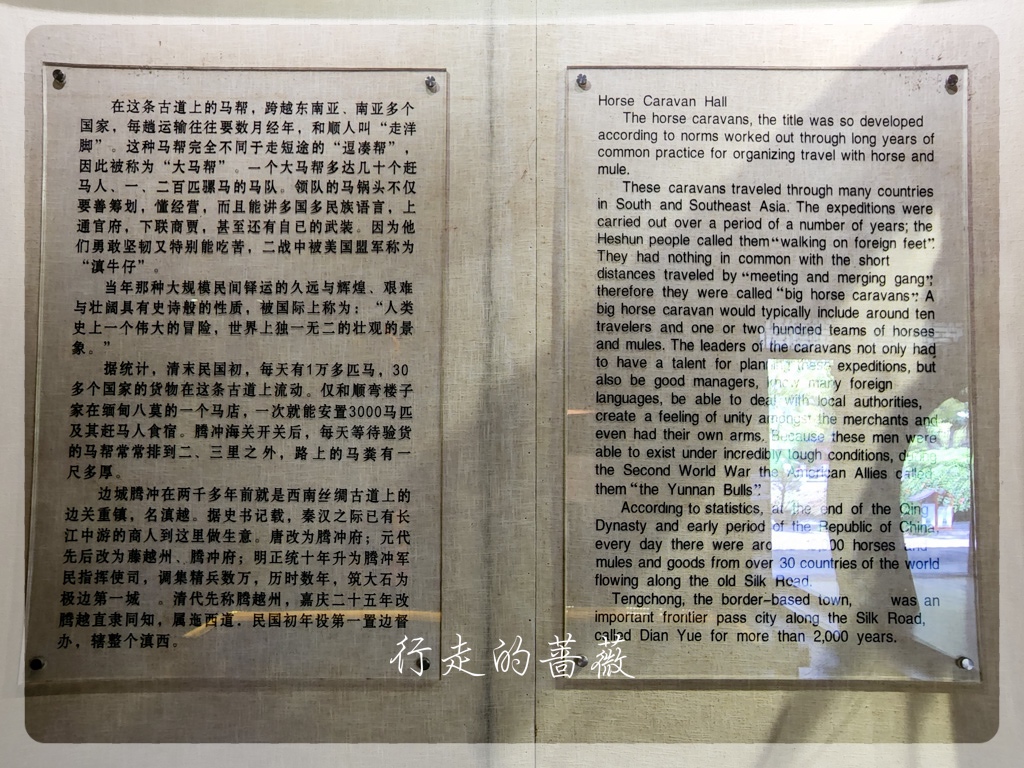 在这条古道上的马帮，跨越东南亚、南亚多个
国家，每趟运输往往要数月经年，和顺人叫“走洋
脚”。这种马帮完全不同于走短途的“逗凑帮”，
因此被称为“大马帮”。一个大马帮多达几十个赶
马人、一、二百匹骡马的马队。领队的马锅头不仅
要善筹划，懂经营，而且能讲多国多民族语言，上
通官府，下联商贾，甚至还有自已的武装。因为他
们勇敢坚韧又特别能吃苦，二战中被美国盟军称为
“滇牛仔”。
当年那种大规模民间铎运的久远与辉煌、艰难
与壮阔具有史诗般的性质，被国际上称为：“人类
史上一个伟大的冒险，世界上独一无二的壮观的景
象。”
据统计，清末民国初，每天有1万多匹马，30
多个国家的货物在这条古道上流动。仅和顺弯楼子
家在缅甸八莫的一个马店，一次就能安置3000马匹
及其赶马人食宿。腾冲海关开关后，每天等待验货
的马帮常常排到二、三里之外，路上的马粪有一
尺多厚。
边城腾冲在两千多年前就是西南丝绸古道上的
边关重镇，名滇越。据史书记载，秦汉之际已有长
江中游的商人到这里做生意。唐改为腾冲府；元代
先后改为藤越州、腾冲府；明正统十年升为腾冲军
民指挥使司，调集精兵数万，历时数年，筑大石为
极边第一城 。清代先称腾越州，嘉庆二十五年改
腾越直隶同知，属迤西道．民国初年设第一置边督
办，辖整个滇西。
Horse Caravan Hall
The horse caravans, the title was so developed
according to norms worked out through long years of
common practice for organizing travel with horse and
mule.
These caravans traveled through many countries
in South and Southeast Asia. The expeditions were
carried out over a period of a number of years; the
Heshun people called them“walking on foreign feet”.
They had nothing in common with the short
distances traveled by “meeting and merging gang”;
therefore they were called“big horse caravans”. A
big horse caravan would typically include around ten
travelers and one or two hundred teams of horses
and mules. The leaders of the caravans not only had
to have a talent for planning these expeditions, but
also be good managers, know many foreign
languages, be able to deal with local authorities,
create a feeling of unity amongst the merchants and
even had their own arms. Because these men were
able to exist under incredibly tough conditions, during
the Second World War the American Allies called
them“the Yunnan Bulls”.
According to statistics, at the end of the Qing
Dynasty and early period of the Republic of China,
every day there were horses and
mules and goods from over 30 countries of the world
flowing along the old Silk Road.
Tengchong, the border–based town, was an
important frontier pass city along the Silk Road,
called Dian Yue for more than 2,000 years.
行走的蔷薇